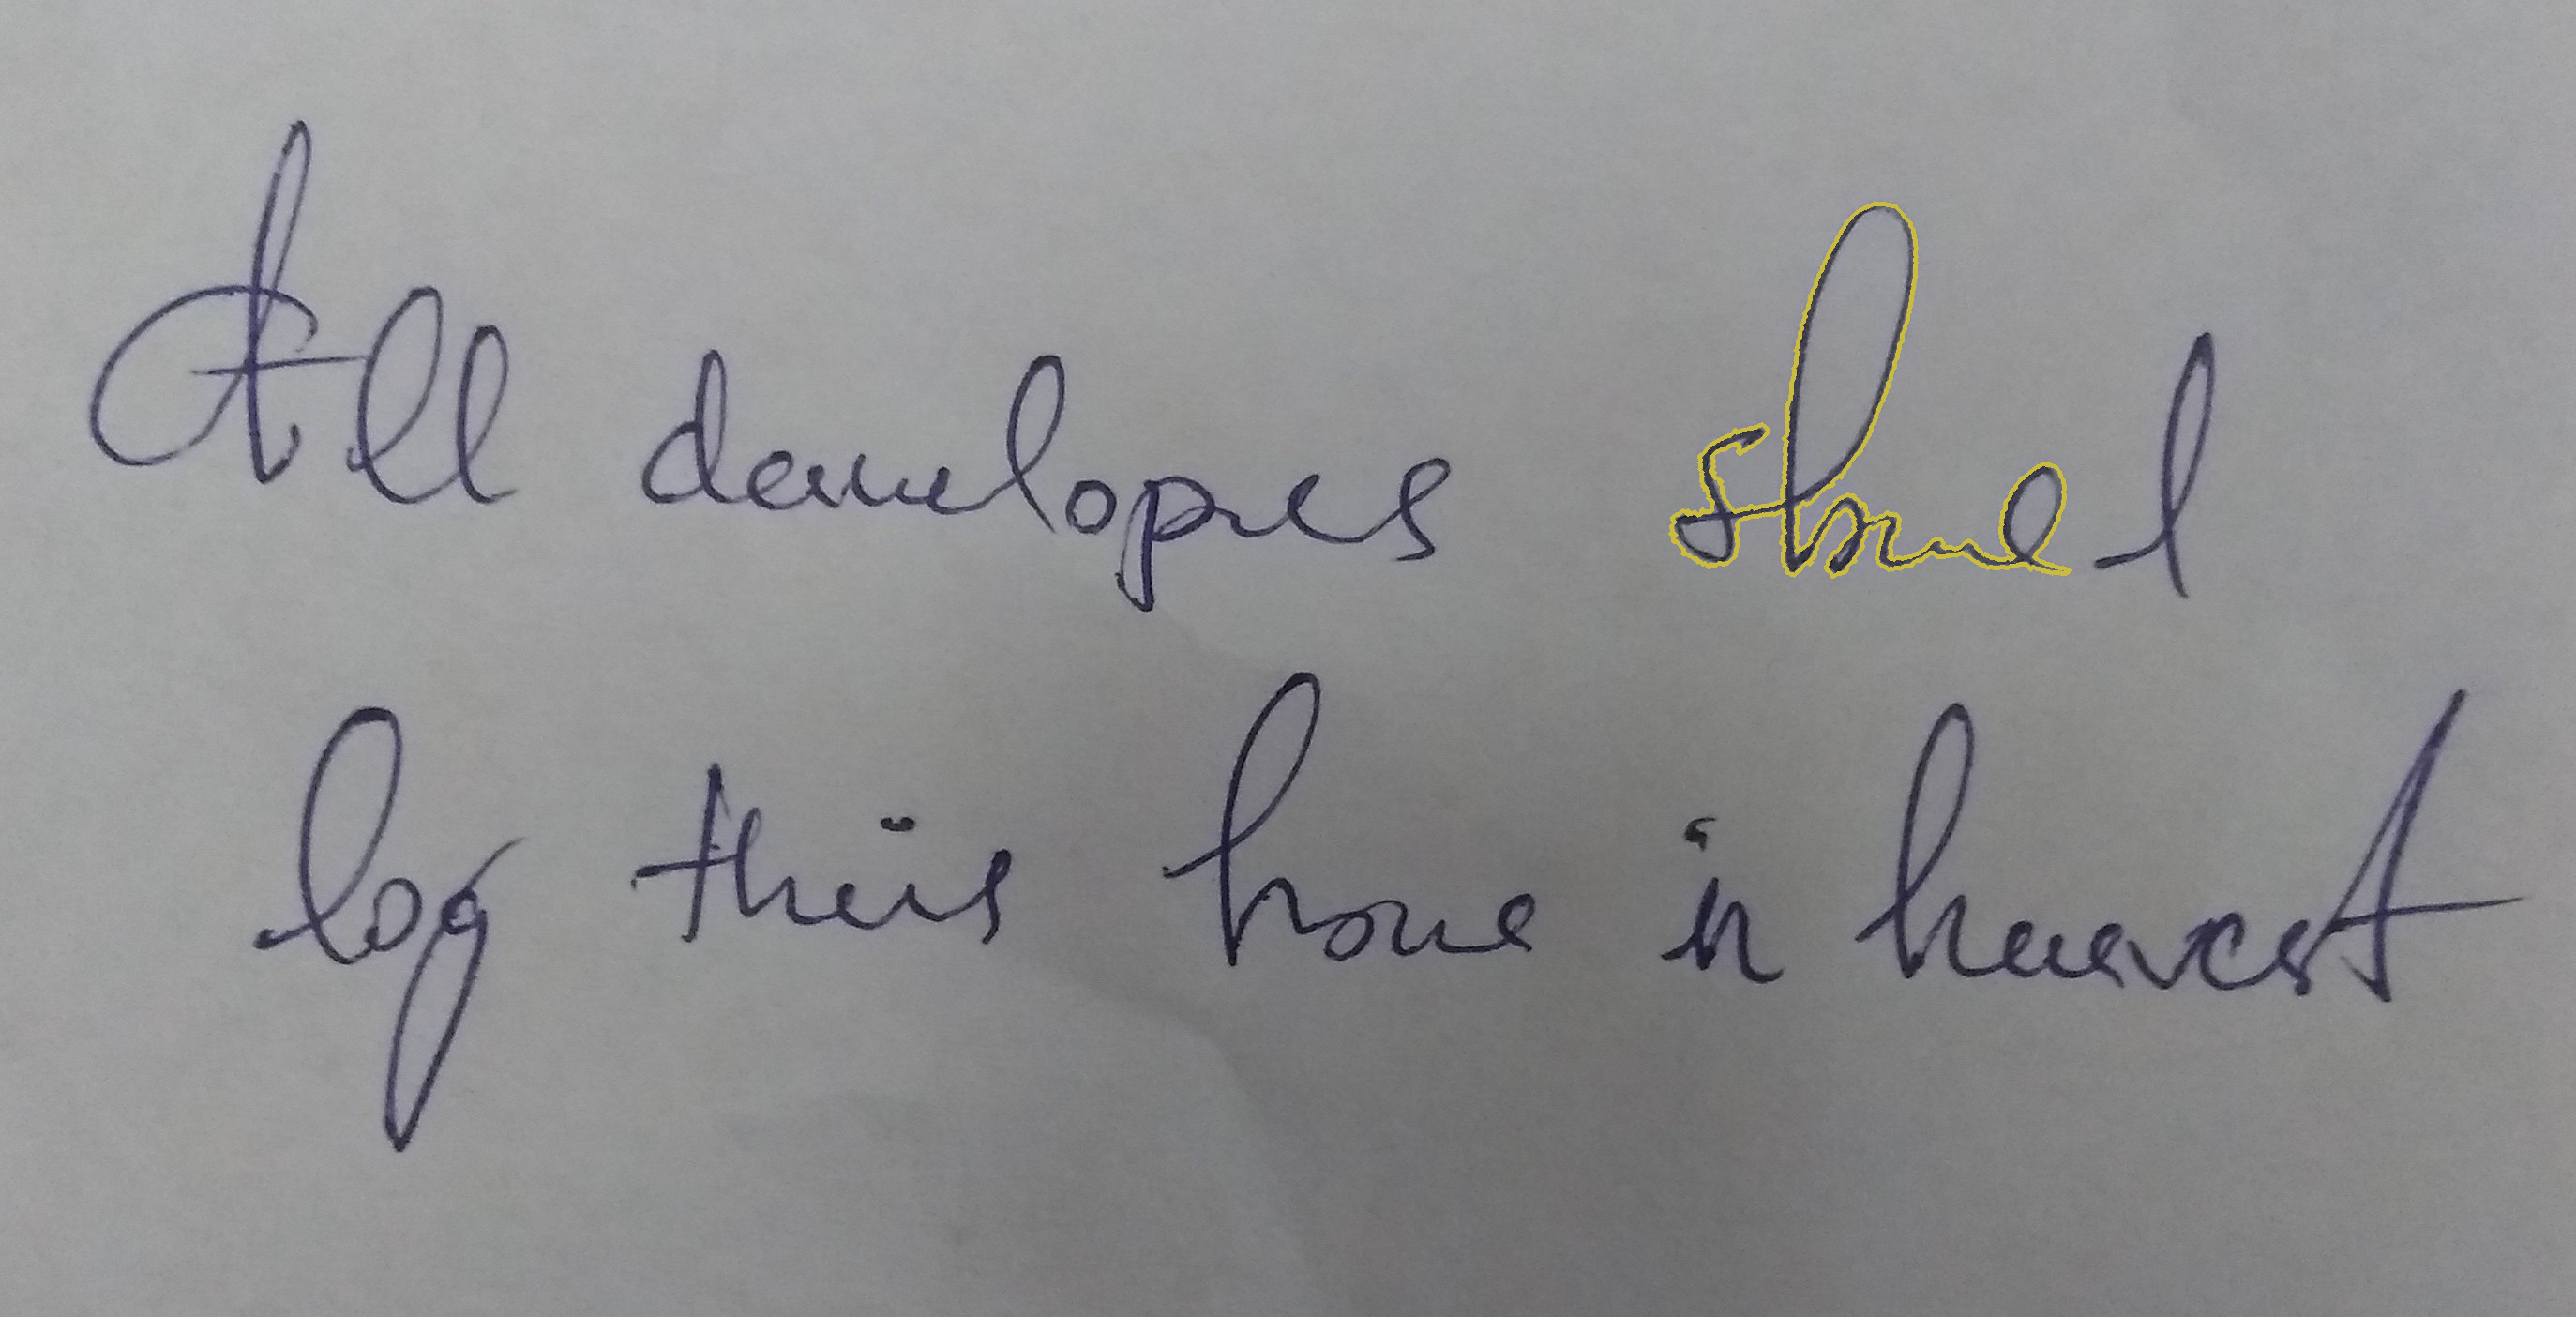 All developes should
log theis hour in harvest